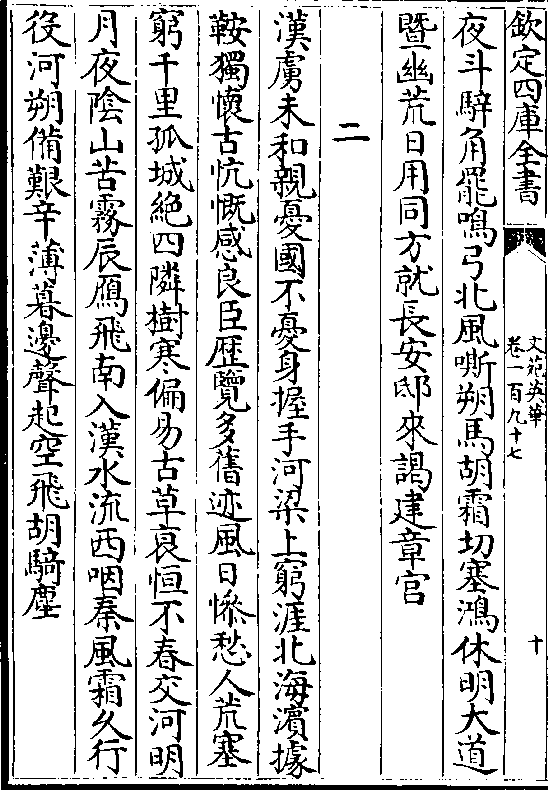 欽定四庫全書
文苑英華
卷一百九十七
十
夜斗騂角罷鳴弓北風嘶朔馬胡霜切塞鴻休明大道
暨幽荒日用同方就長安邸來謁建章宫
二
漢虜未和親憂國不憂身握手河梁上窮涯北海濱據
鞍獨懷古忼慨感良臣歴覽多舊迹風日慘愁人荒塞
窮千里孤城絶四隣樹寒偏易古草衰恒不春交河明
月夜陰山苦霧辰鴈飛南入漢水流西咽秦風霜久行
役河朔備艱辛薄暮邊聲起空飛胡騎塵